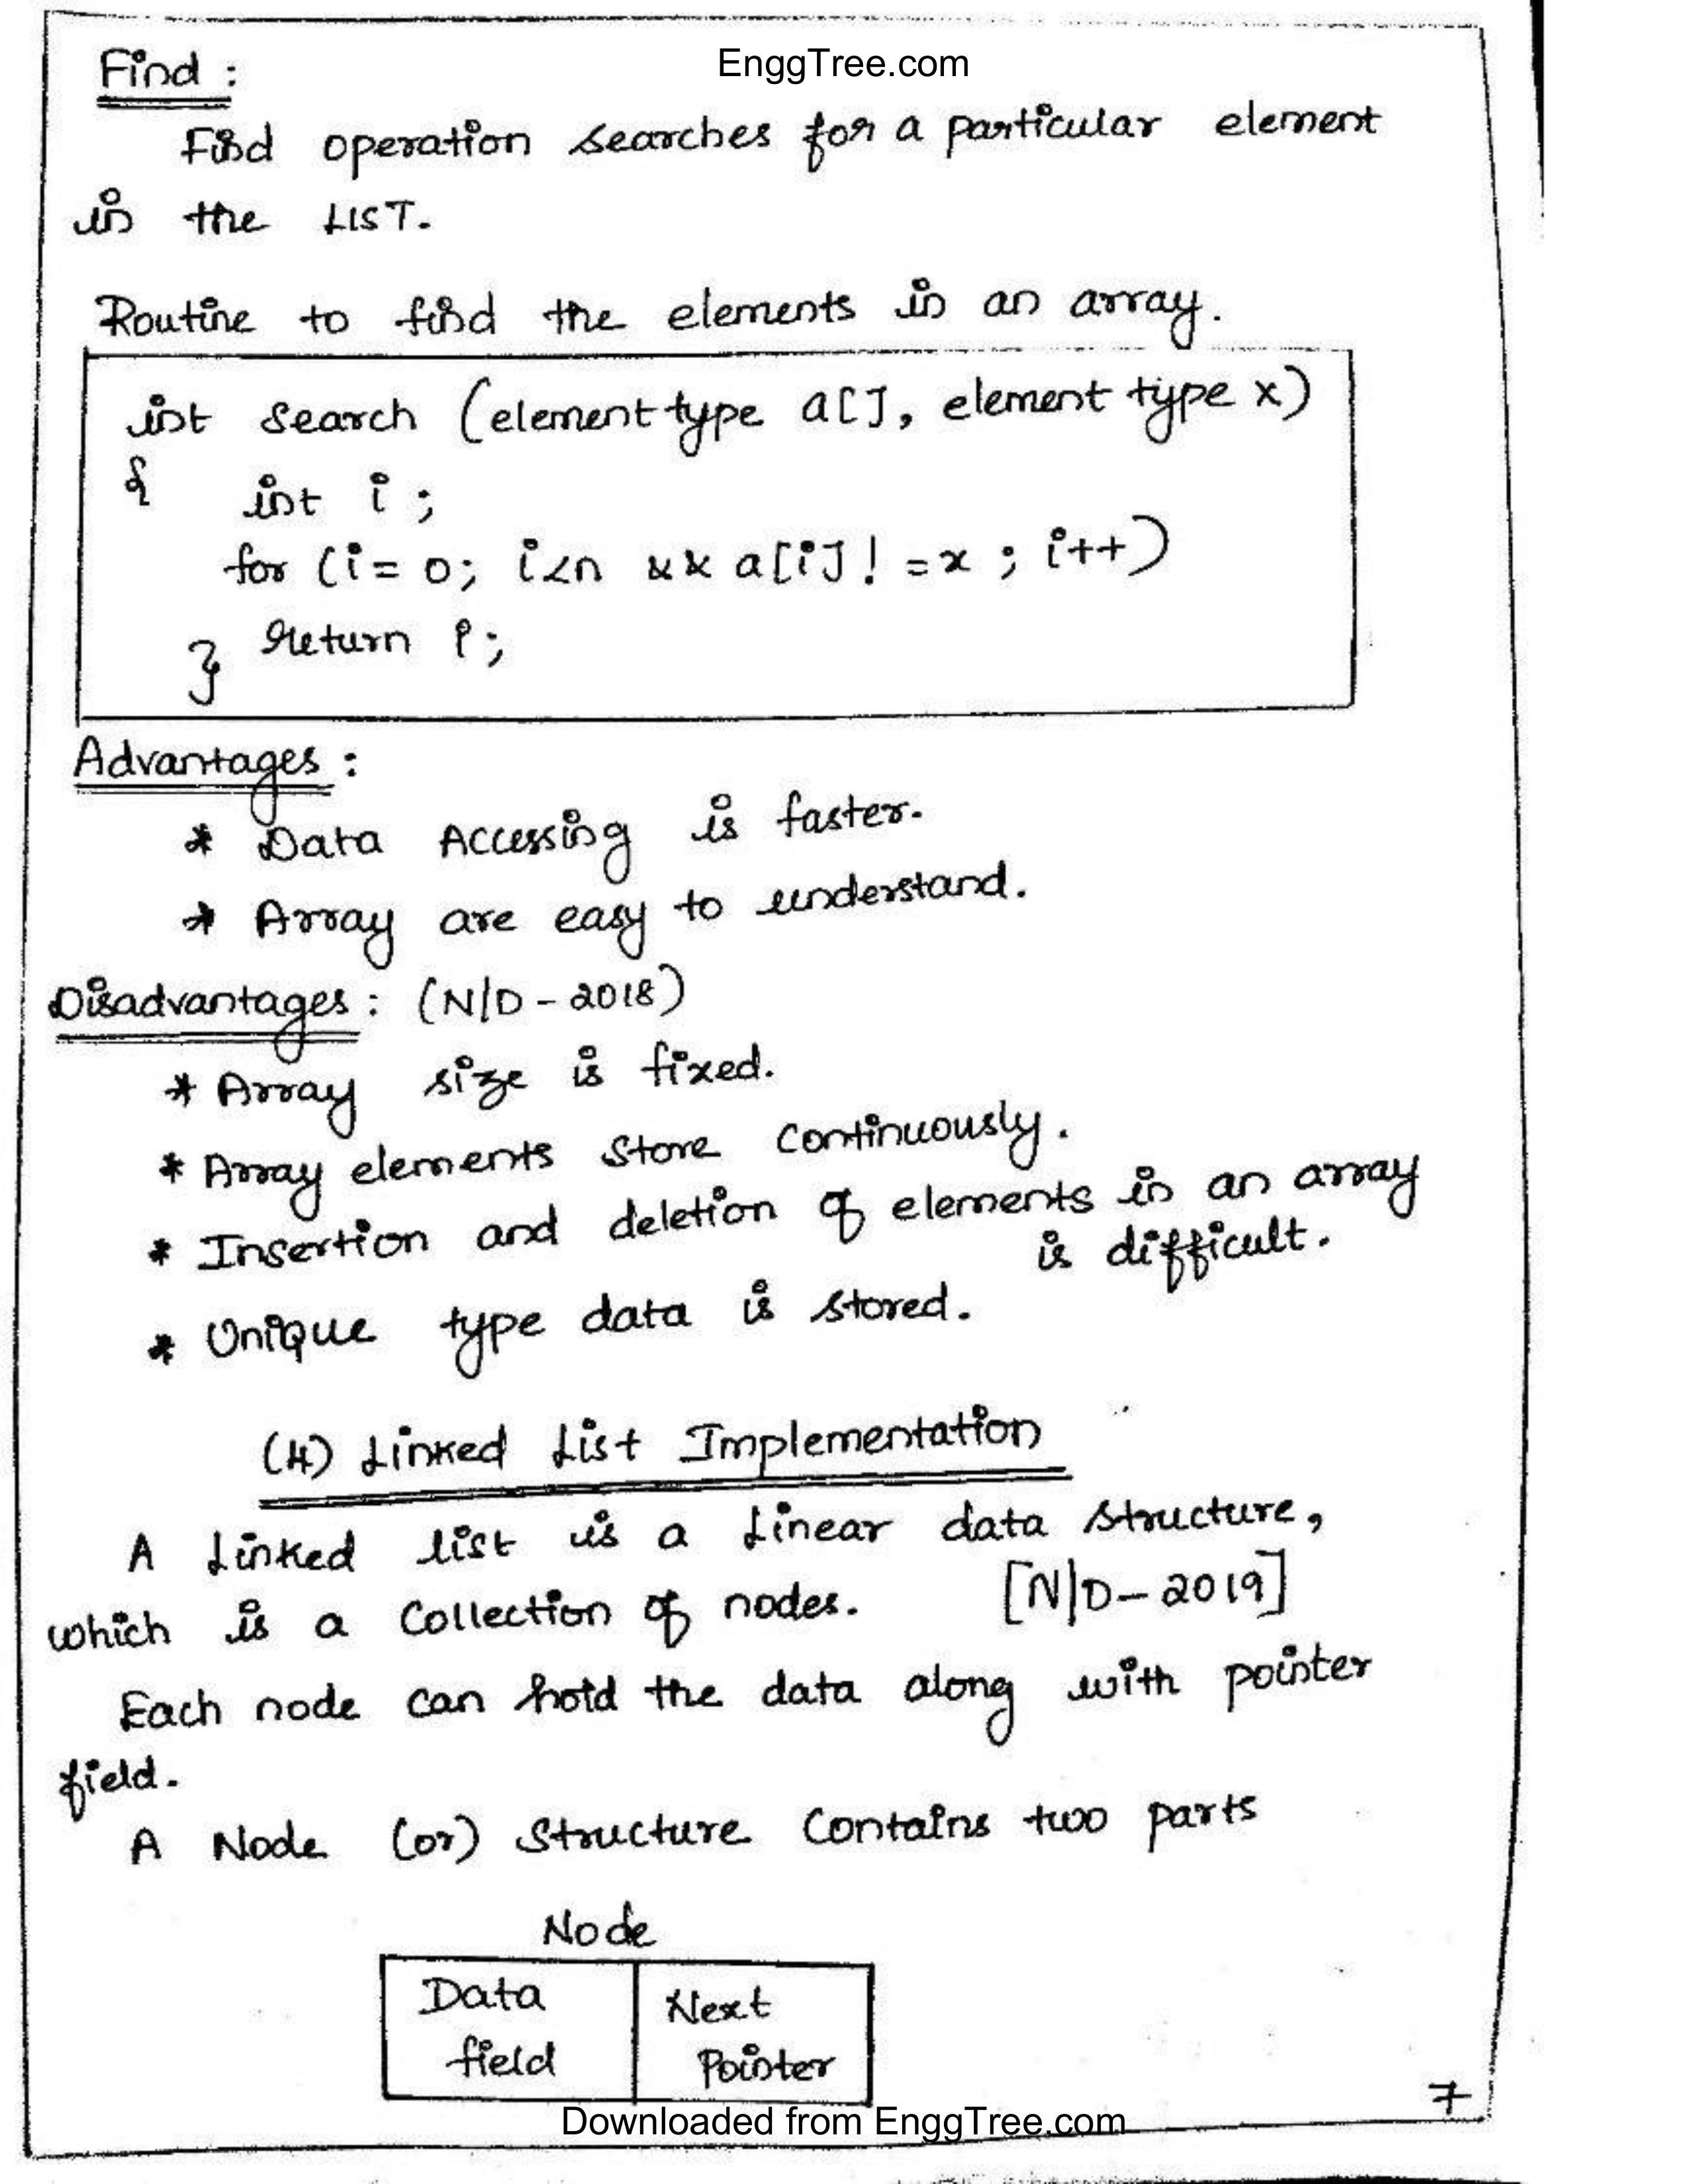 EnggTree.com
Find :
Find operation searches for a particular element
in the LIST.
Routine to find the elements in an array.
int search (elementtype a[], element type x)
{ int i ;
for (i = 0; i<n && a[i] ! = x ; i++)
return i;
}
Advantages :
* Data Accessing is faster.
* Array are easy to understand.
Disadvantages : (N/D - 2018)
* Array size is fixed.
* Array elements store continuously.
* Insertion and deletion of elements in an array
is difficult.
* Unique type data is stored.
(4) Linked List Implementation
A Linked list is a Linear data structure,
which is a collection of nodes. [N/D - 2019]
Each node can hold the data along with pointer
field.
A Node (or) structure contains two parts
Node
Data Next
field Pointer
7
Downloaded from EnggTree.com